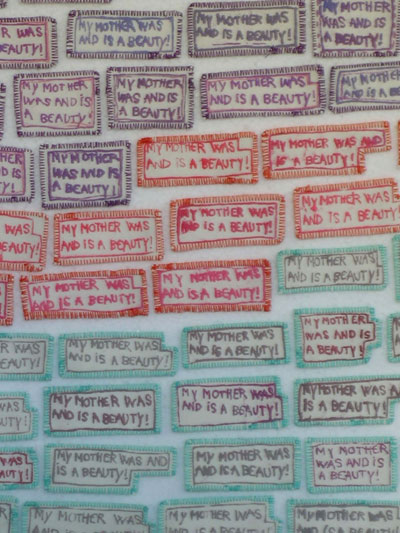 MY MOTHER WAS
AND IS A BEAUTY!
MY MOTHER WAS
AND IS A BEAUTY!
MY MOTHER
WAS AND IS
A BEAUTY!
MY MOTHER
WAS AND IS
A BEAUTY!
MY MOTHER WAS
AND IS A BEAUTY!
MOTHER
MY MOTHER
WAS AND IS
A BEAUTY!
MY MOTHER WAS
AND IS A BEAUTY!
MY MOTHER WAS AND
IS A BEAUTY!
WAS
BEAUTY!
MY MOTHER WAS
AND IS A BEAUTY!
MY MOTHER WAS
AND IS A BEAUTY!
MY MOTHER WAS
AND IS A BEAUTY!
MY MOTHER WAS
AND IS A BEAUTY!
MY MOTHER WAS
AND IS A BEAUTY!
MY MOTHER WAS
AND IS A BEAUTY!
MOTHER WAS
A BEAUTY!
MY MOTHER WAS
AND IS A BEAUTY!
MY MOTHER WAS
AND IS A BEAUTY!
MY MOTHER
WAS AND IS
A BEAUTY!
MY MOTHER WAS
AND IS A BEAUTY!
MY MOTHER WAS
AND IS A BEAUTY!
MY MOTHER WAS
AND IS A BEAUTY!
MY MOTHER WAS AND
IS A BEAUTY!
MY MOTHER WAS
AND IS A BEAUTY!
MY MOTHER
WAS AND IS
A BEAUTY!
MY MOTHER WAS
MY MOTHER WAS
MY MOTHER WAS